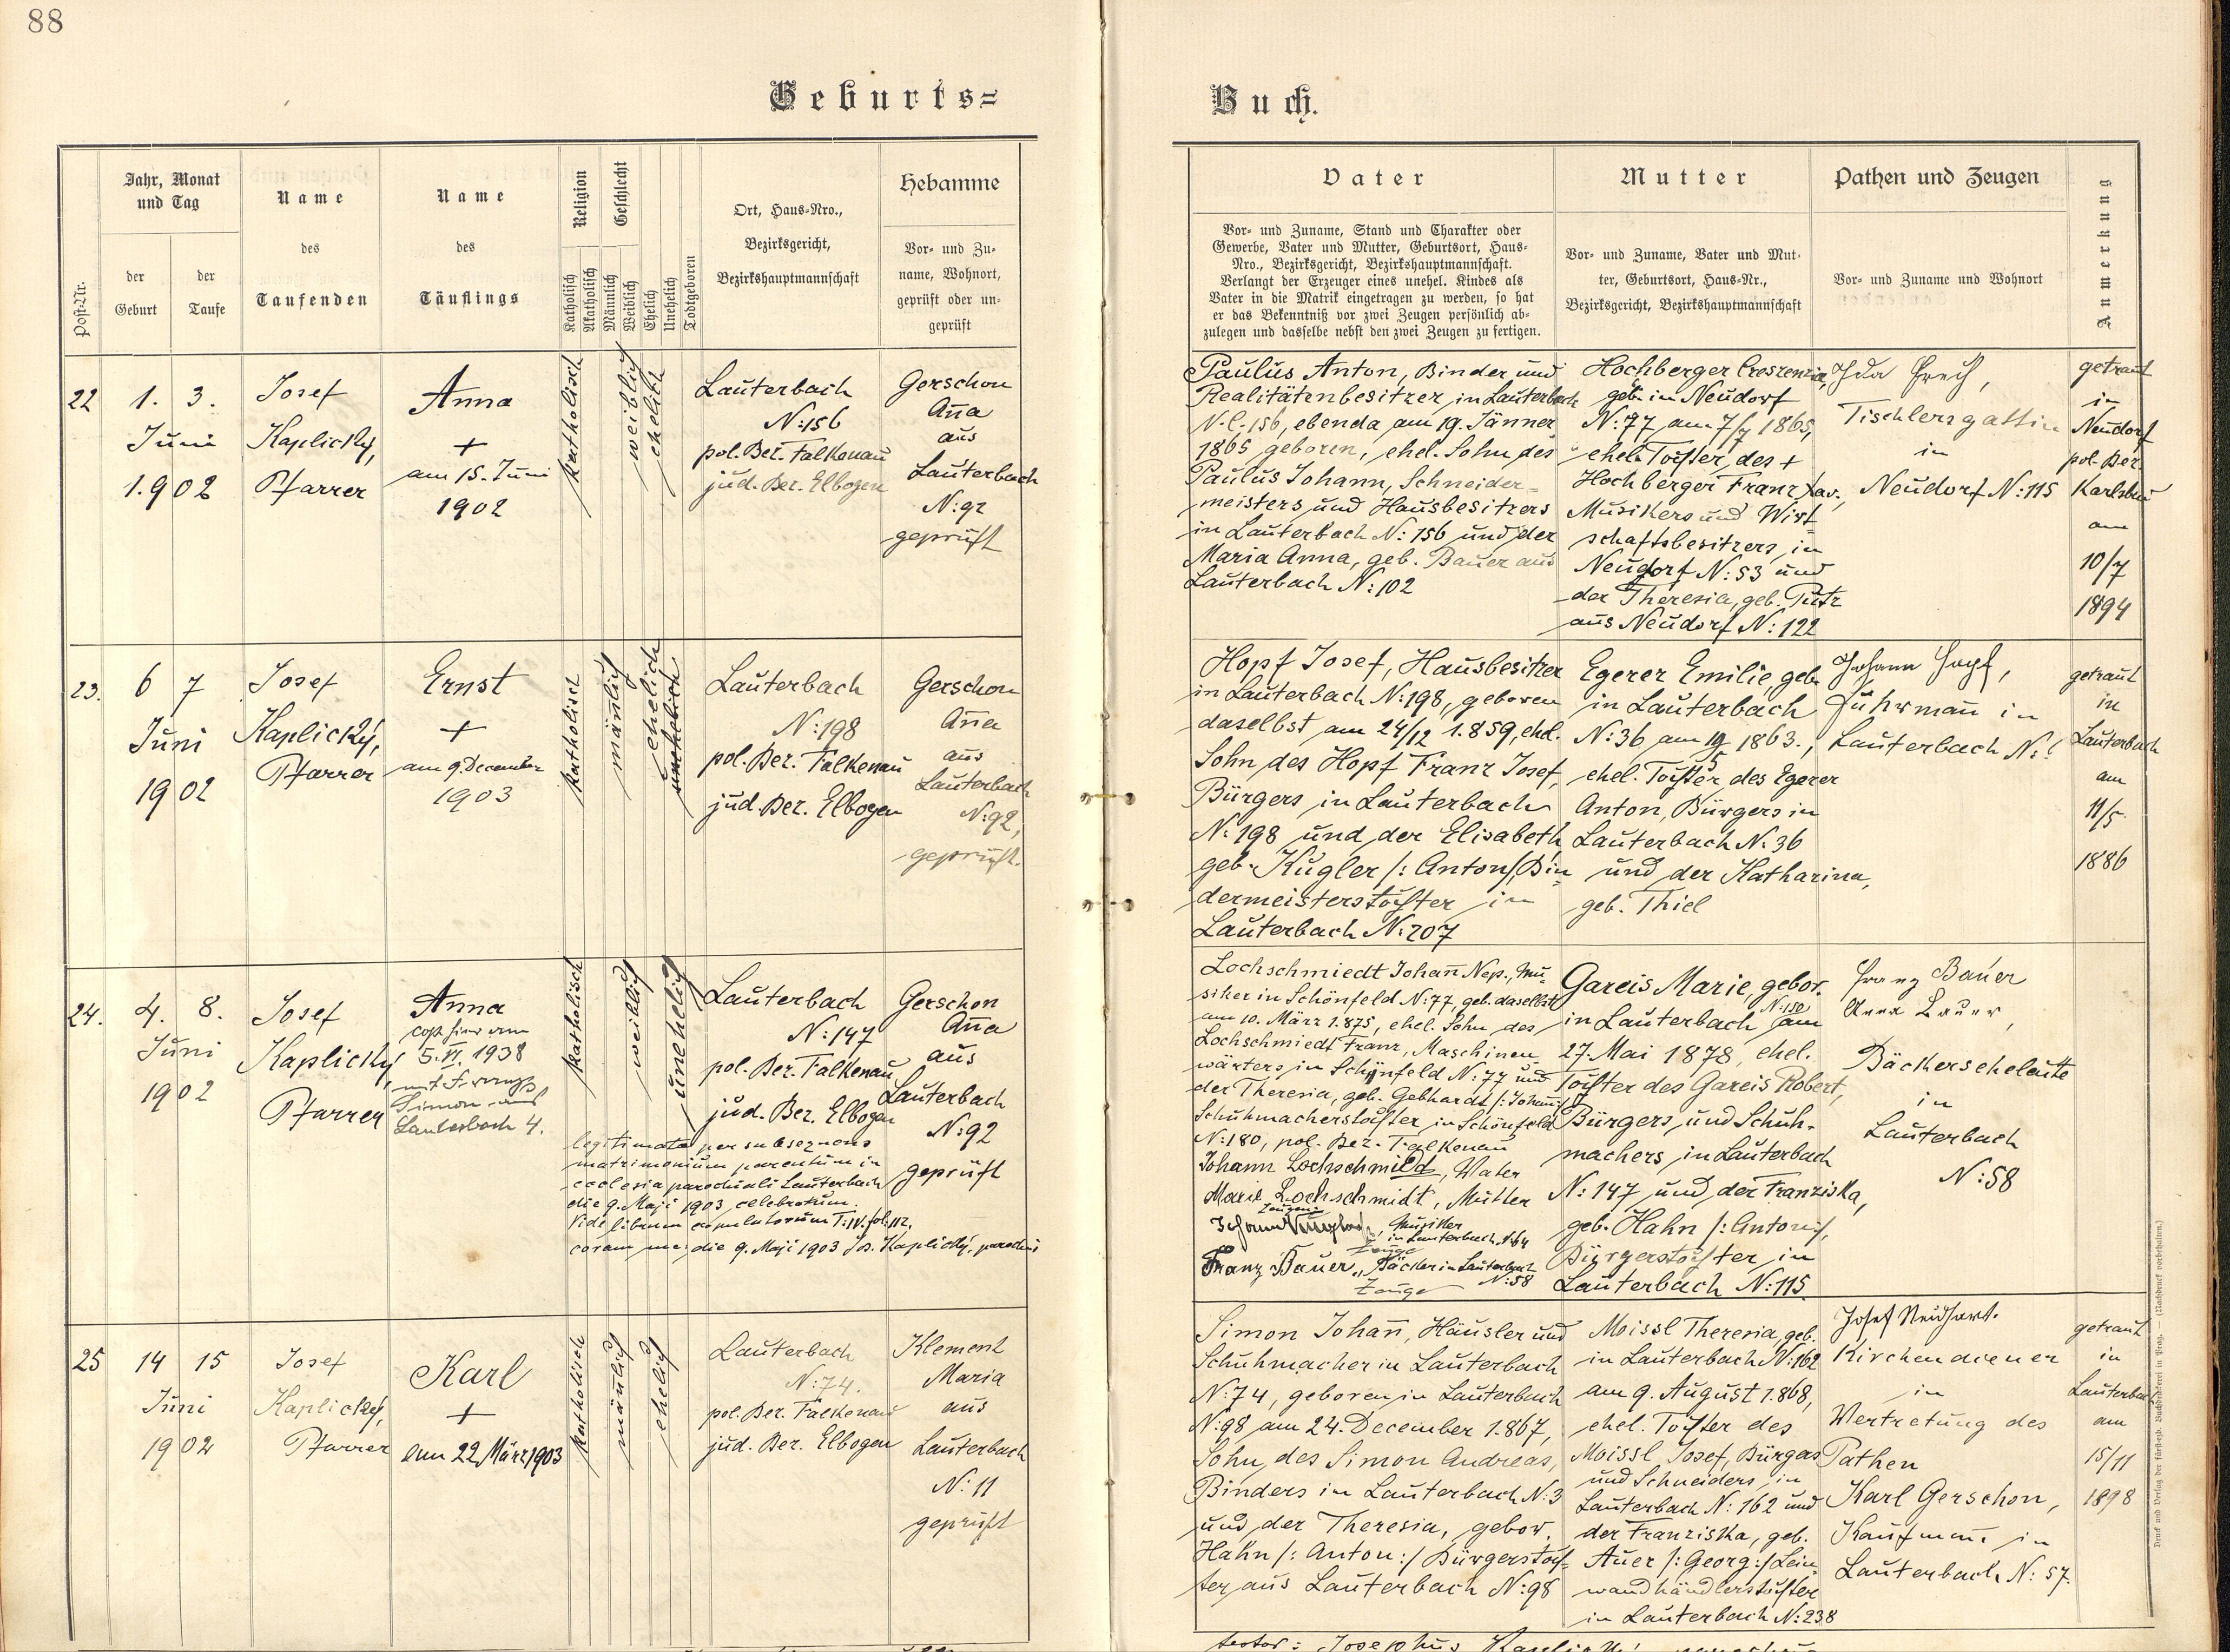 88
Geburts=
Buch.
Post-Nr.
Jahr, Monat
und Tag
der
Geburt
der
Taufe
Name
des
Taufenden
Name
des
Täuflings
Religion
Katholisch
Akatholisch
Geschlecht
Männlich
Weiblich
Ehelich
Unehelich
Todtgeboren
Ort, Haus-Nro.,
Bezirksgericht,
Bezirkshauptmannschaft
Hebamme
Vor- und Zu-
name, Wohnort,
geprüft oder un-
geprüft
Vater
Vor- und Zuname, Stand und Charakter oder
Gewerbe, Vater und Mutter, Geburtsort, Haus-
Nro., Bezirksgericht, Bezirkshauptmannschaft.
Verlangt der Erzeuger eines unehel. Kindes als
Vater in die Matrik eingetragen zu werden, so hat
er das Bekenntniß vor zwei Zeugen persönlich ab-
zulegen und dasselbe nebst den zwei Zeugen zu fertigen.
Mutter
Vor- und Zuname, Vater und Mut-
ter, Geburtsort, Haus-Nr.,
Bezirksgericht, Bezirkshauptmannschaft
Pathen und Zeugen
Vor- und Zuname und Wohnort
Anmerkung
22
1. 3.
Juni
1.902
Josef
Kaplický,
Pfarrer
Anna
+
am 15. Juni
1902
katholisch
weiblich
ehelich
Lauterbach
N:156
pol. Bez. Falkenau
jud. Bez. Elbogen
Gerschon
Aña
aus
Lauterbach
N:92
geprüft
Paulus Anton, Binder und
Realitätenbesitzer in Lauterbach
N.C. 156, ebenda am 19. Jänner
1865 geboren, ehel. Sohn des
Paulus Johann, Schneider=
meisters und Hausbesitzers
in Lauterbach N: 156 und der
Maria Anna, geb. Bauer aus
Lauterbach N: 102
Hochberger Creszenzia,
geb. in Neudorf
N: 77 am 7/7 1865,
ehel. Tochter des +
Hochberger Franz Xav.,
Musikers und Wirt=
schaftsbesitzers in
Neudorf N: 53 und
der Theresia, geb. Pütz
aus Neudorf N: 122
Ida
Tischlersgattin
in
Neudorf N: 115
getraut
in
Neudorf
pol. Bez.
Karlsbad
am
10/7
1894
23.
6 7
Juni
1902
Josef
Kaplický,
Pfarrer
Ernst
+
am 9. December
1903
katholisch
mäñlich
ehelich
unehelich
Lauterbach
N:198
pol. Bez. Falkenau
jud. Bez. Elbogen
Gerschon
Aña
aus
Lauterbach
N:92,
geprüft.
Hopf Josef, Hausbesitzer
in Lauterbach N:198, geboren
daselbst am 24/12 1.859, ehel.
Sohn des Hopf Franz Josef,
Bürgers in Lauterbach
N: 198 und der Elisabeth
geb. Kugler /: Anton:/ Bin=
dermeisterstochter in
Lauterbach N:207
Egerer Emilie, geb.
in Lauterbach
N: 36 am 1863.,
ehel. Tochter des Egerer
Anton, Bürgers in
Lauterbach N. 36
und der Katharina,
geb. Thiel
Johann Hopf,
Fuhrmañ in
Lauterbach N:
getraut
in
Lauterbach
am
11/5
1886
24.
4. 8.
Juni
1902
Josef
Kaplický,
Pfarrer
Anna
cop. hier am
5. VI. 1938
mit
Simon aus
Lauterbach 4.
katholisch
weiblich
unehelich
Lauterbach
N:147
pol. Bez. Falkenau
jud. Bez. Elbogen
legitimata per subsequens
matrimonium parentum in
ecclesia parochiali Lauterbach
die 9. Maji 1903 celebratum.
Vide librum copulatorum T: IV. fol: 112.
coram me: die 9. Maji 1903 Jos. Kaplický, parochus
Gerschon
Aña
aus
Lauterbach
N:92
geprüft
Lochschmiedt Johañ Nep., Mu=
siker in Schönfeld N:77, geb. daselbst
am 10. März 1.875, ehel. Sohn des
Lochschmiedt Franz, Maschinen
wärters in Schönfeld N:77 und
der Theresia, geb. Gebhardt /: Johañ:/
Schuhmacherstochter in Schönfeld
N:180, pol. Bez. Falkenau
Johann Lochschmidt, Vater
Marie Lochschmidt, Mutter
Johann Kugler, Musiker
in Lauterbach N:64
Zeuge
Franz Bauer, Bäcker in Lauterbach
N:58
Zeuge
Gareis Marie, gebor.
in Lauterbach N:150 am
27. Mai 1878, ehel.
Tochter des Gareis Robert,
Bürgers und Schuh=
machers in Lauterbach
N: 147 und der Franziska,
geb. Hahn /: Anton:/,
Bürgerstochter in
Lauterbach N:115.
Franz Bauer
Anna Bauer,
Bäckerseheleute
in
Lauterbach
N:58
25
14 15
Juni
1902
Josef
Kaplický,
Pfarrer
Karl
+
am 22 März 1903
katholisch
mäñlich
ehelich
Lauterbach
N:74.
pol. Bez. Falkenau
jud. Bez. Elbogen
Klement
Maria
aus
Lauterbach
N: 11
geprüft
Simon Johañ, Häusler und
Schuhmacher in Lauterbach
N:74, geboren in Lauterbach
N:98 am 24. December 1.867,
Sohn des Simon Andreas,
Binders in Lauterbach N:3
und der Theresia, gebor.
Hahn /: Anton:/ Bürgerstoch=
ter aus Lauterbach N:98
Moissl Theresia, geb.
in Lauterbach N:162
am 9. August 1.868,
ehel. Tochter des
Moissl Josef, Bürgers
und Schneiders in
Lauterbach N: 162 und
der Franziska, geb.
Auer /: Georg:/ Lein=
wandhändlerstochter
in Lauterbach N:238
Josef Neidhart.
Kirchendiener
in
Vertretung des
Pathen
Karl Gerschon,
Kaufmañ in
Lauterbach N: 57.
getraut
in
Lauterbach
am
15/11
1898
Druck und Verlag der fürsterzb. Buchdruckerei in Prag. — (Nachdruck vorbehalten.)